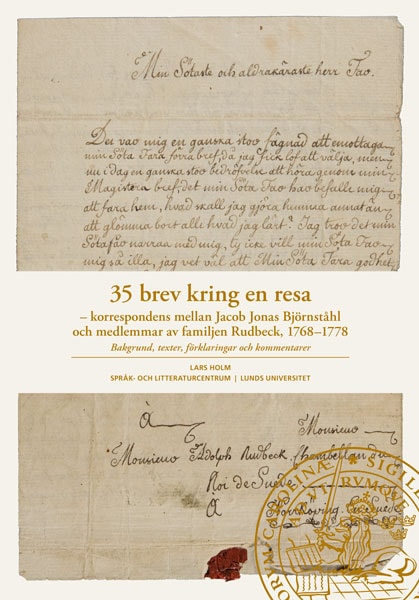 Min Sötaste och aldrakäraste herr Far.
Det var mig en ganska stor fägnad att emottaga
min Söta Fars förra bref, då jag fick lof att välja, men
nu i dag en ganska stor bedröfvelse att höra genom min
Magisters bref, det min Söta Far har befalt mig
att fara hem, hvad skall jag göra hemma annat än
att glömma bort alle hvad jag lärt? Jag tror det min
Söta far narras med mig, ty icke vill min Söta Far
mig så illa, jag vet väl att Min Söta Fars godhet
35 brev kring en resa
– korrespondens mellan Jacob Jonas Björnståhl
och medlemmar av familjen Rudbeck, 1768–1778
Bakgrund, texter, förklaringar och kommentarer
LARS HOLM
SPRÅK- OCH LITTERATURCENTRUM | LUNDS UNIVERSITET
À Monsieur
Monsieur Adolph Rudbeck, Chambellan du
Roi de Suede
À Norrköping